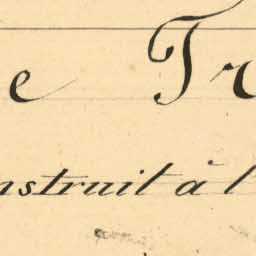 e Tr
nstruit à l